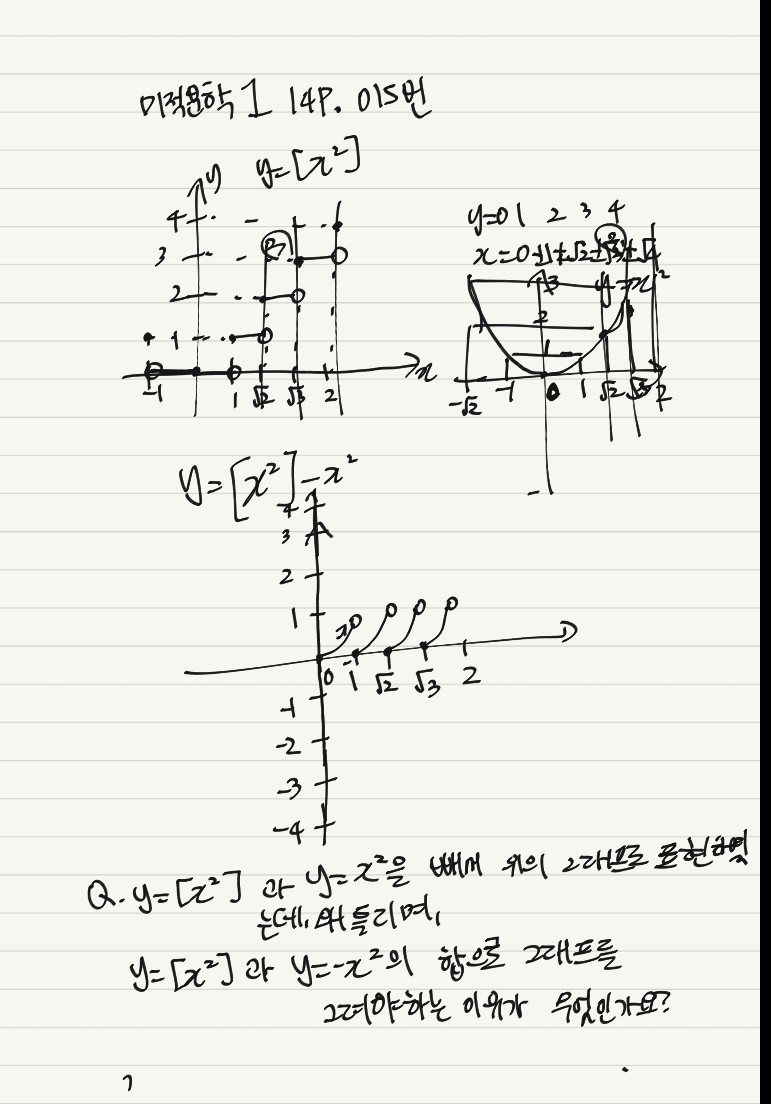 미적분학 1 14P. 015번
y=[x²]
y
4
3
2
1
-1
1
√2
√3
2
x
y=0 1 2 3 4
x=0 ±1 ±√2 ±√3 ±√4
y=x²
3
2
1
-√2
-1
0
1
√2
√3
2
y=[x²]-x²
4
3
2
1
0
1
√2
√3
2
-1
-2
-3
-4
Q. y=[x²] 과 y=x²을 빼서 위의 그래프로 표현하였
는데, 왜 틀리며,
y=[x²] 과 y=-x²의 합으로 그래프를
그려야하는 이유가 무엇인가요?